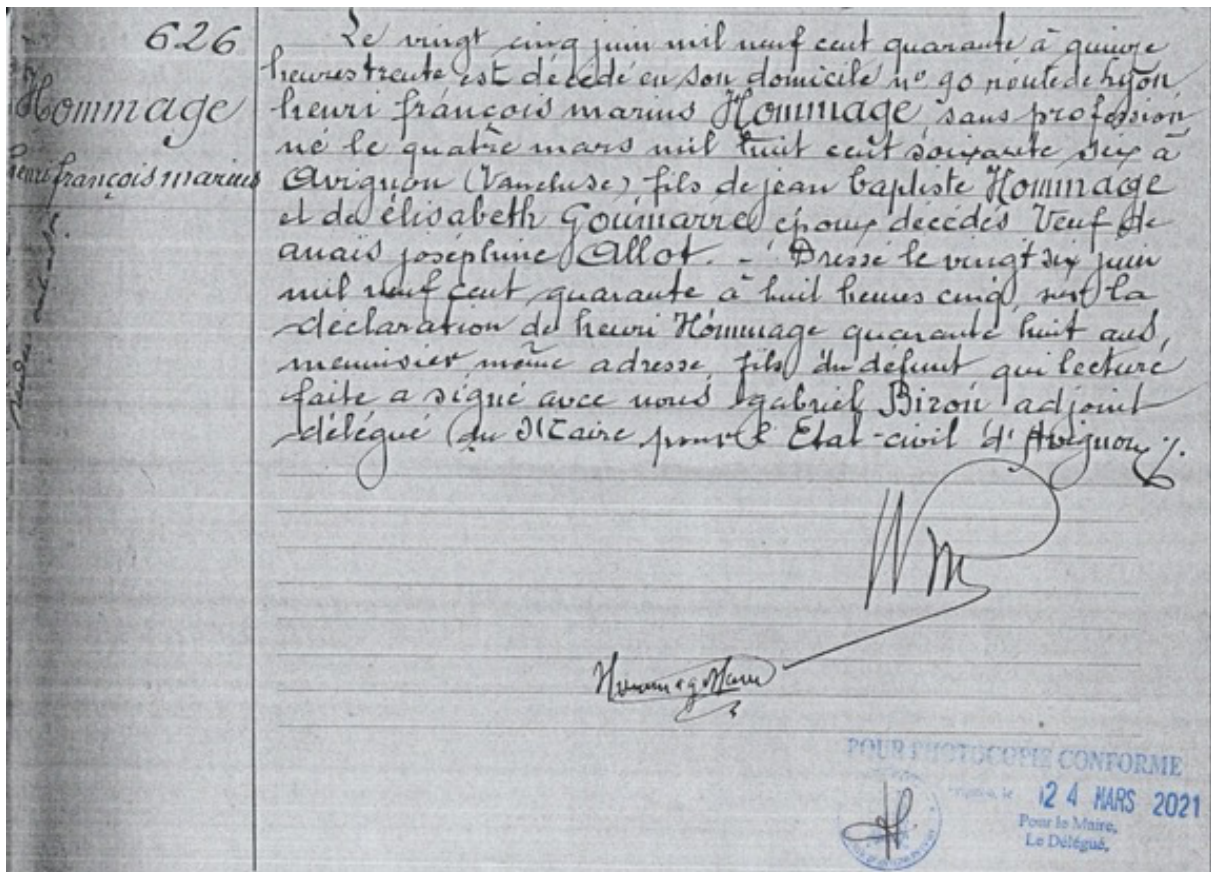 626
Hommage
henri françois marius
Le vingt cinq juin mil neuf cent quarante à quinze
heures trente est décédé en son domicile n° 90 route de Lyon,
henri françois marius Hommage, sans profession
né le quatre mars mil huit cent soixante six à
Avignon (Vaucluse) fils de jean baptiste Hommage
et de élisabeth Goumarre époux décédés Veuf de
anais joséphine Allot. - Dressé le vingt six juin
mil neuf cent quarante à huit heures cinq sur la
déclaration de henri Hommage quarante huit ans,
menuisier même adresse, fils du défunt qui lecture
faite a signé avec nous gabriel Biron adjoint
délégué du Maire pour l'Etat-civil d'Avignon ./.
POUR PHOTOCOPIE CONFORME
le 24 MARS 2021
Pour le Maire,
Le Délégué,